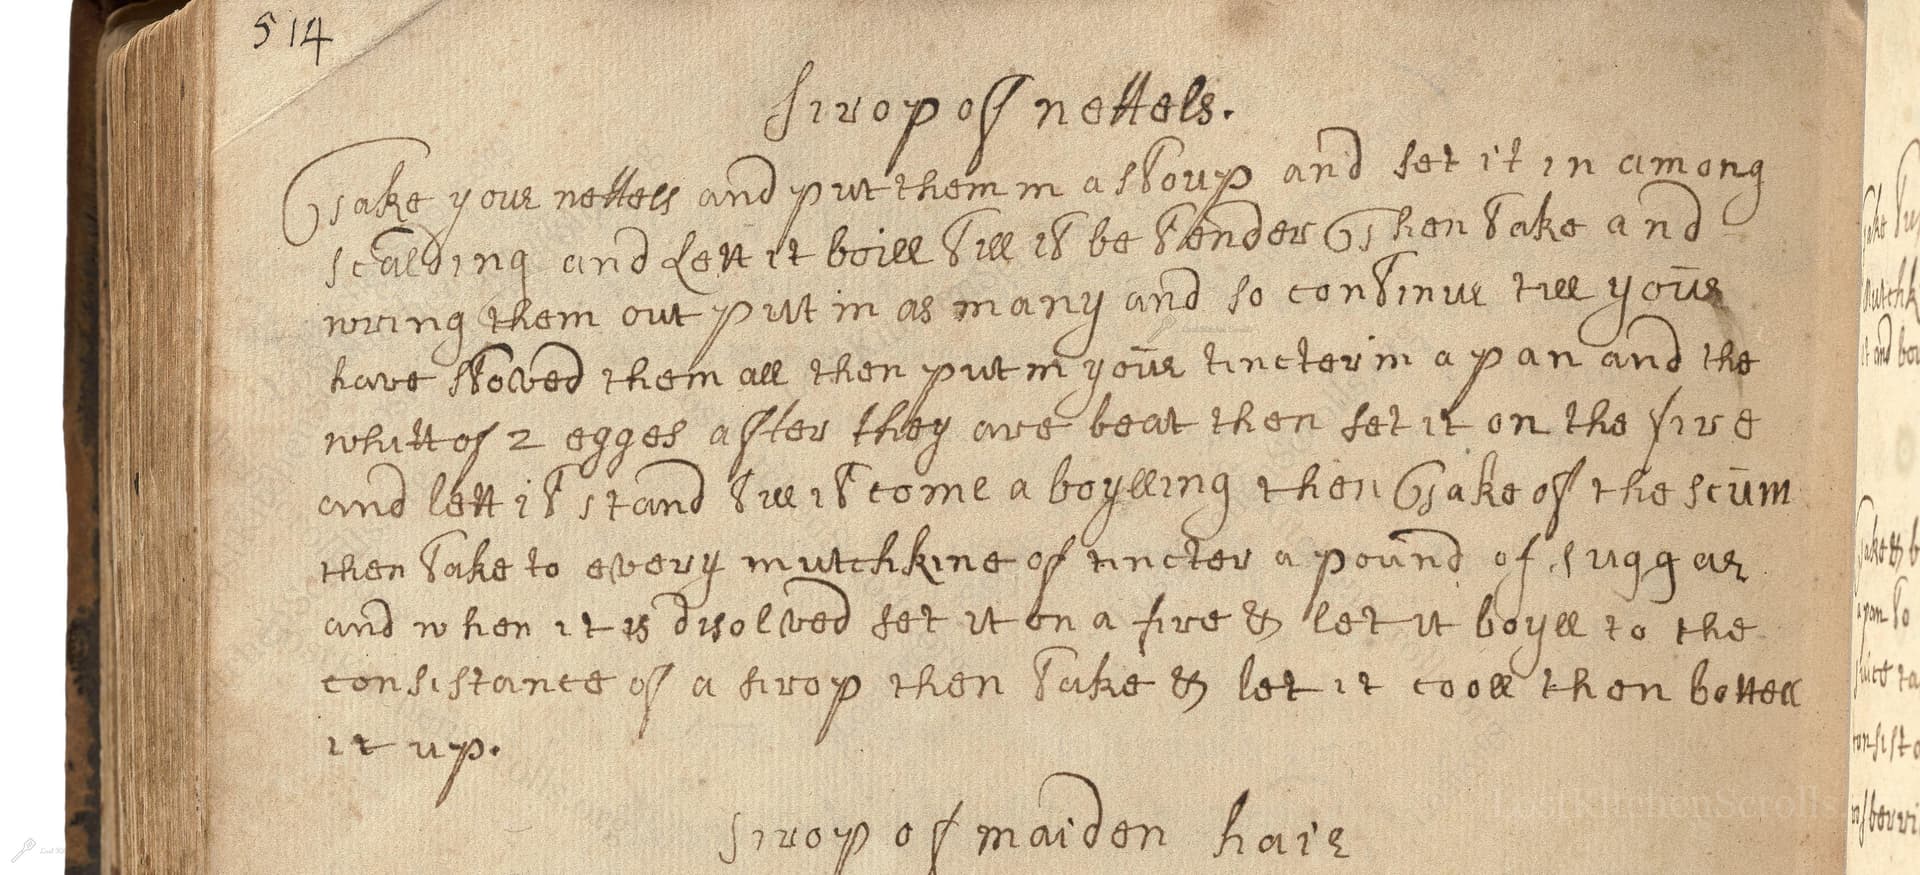 514
sirop of nettels.
Take your nettels and put them in a stoup and set it in among
scalding and Lett it boill till it be tender Then take and
wring them out put in as many and so continue till your
have stoved them all then put in your tincter in a pan and the
whitt of 2 egges after they are beat then set it on the fire
and lett it stand till it come a boylling then Take of the scum
then take to every mutchkine of tincter a pound of suggar
and when it is disolved set it on a fire & let it boyll to the
consistance of a sirop then take & let it cooll then bottell
it up.
sirop of maiden hair
LostKitchenScrolls